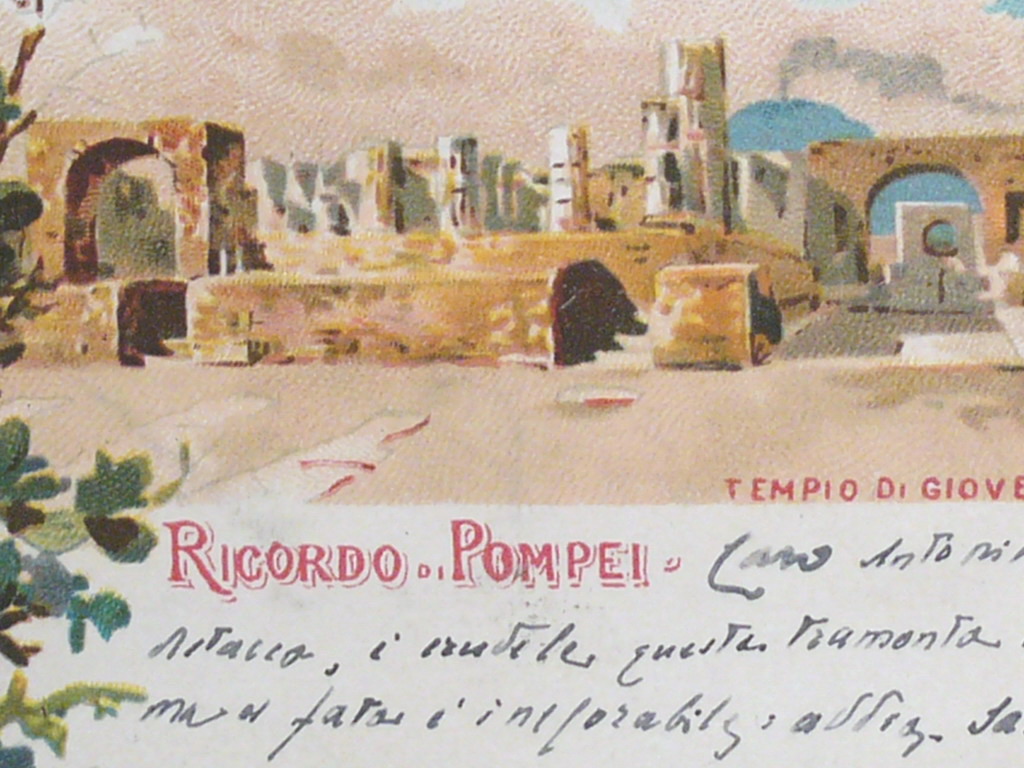 TEMPIO DI GIOVE
RICORDO DI POMPEI - Caro Antonin
distacco, è crudele questo tramonto
ma il fato è inesorabile: